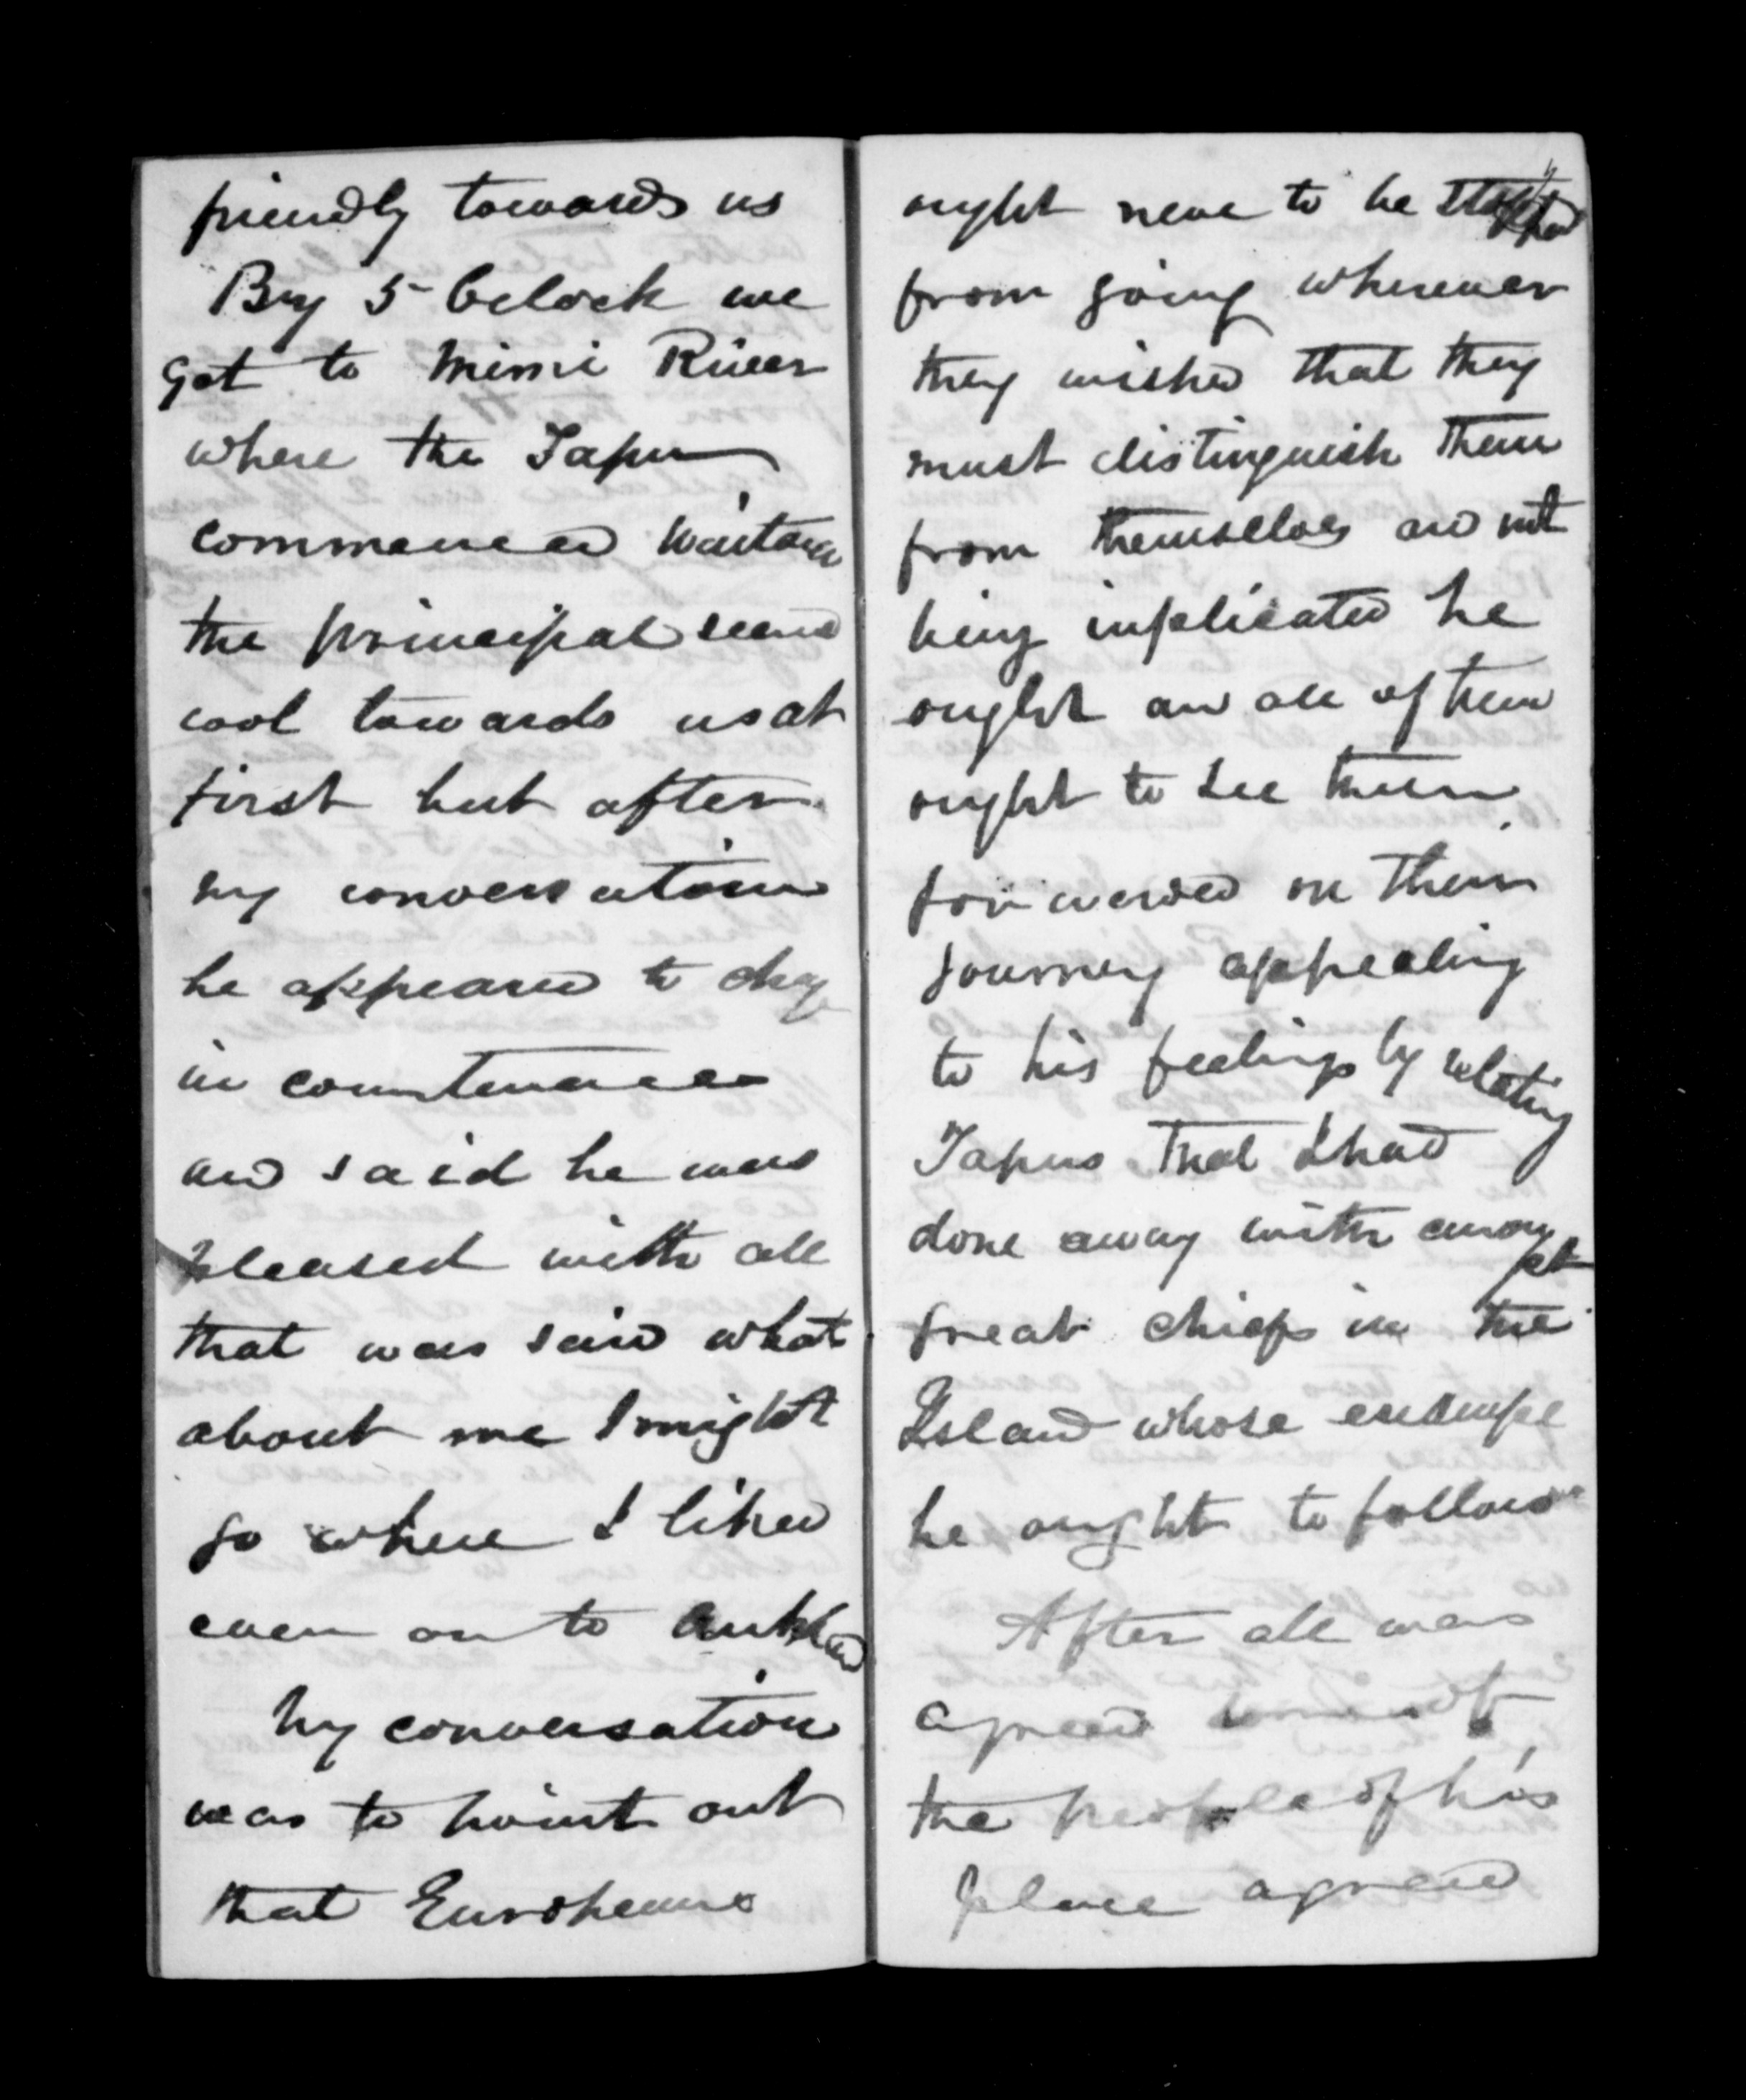 friendly towards us
By 5 Oclock we
got to Mimi River
where the Tapu
commenced Waitara
the principal seemed
cool towards us at
first but after
my conversation
he appeared to chag
in countenance
and said he was
pleased with all
that was said what
about me I might
go where I liked
even on to Aukland
My conversation
was to point out
that Europeans
ought never to be stopped
from going wherever
they wished that they
must distinguish them
from themselves and not
being implicated he
ought and all of them
ought to see them
forwarded on their
journey appealing
to his feelings by relating
Tapus that I had
done away with amongst
great chiefs in the
Island whose example
he ought to follow
After all was
agreed
the people of his
place agreed